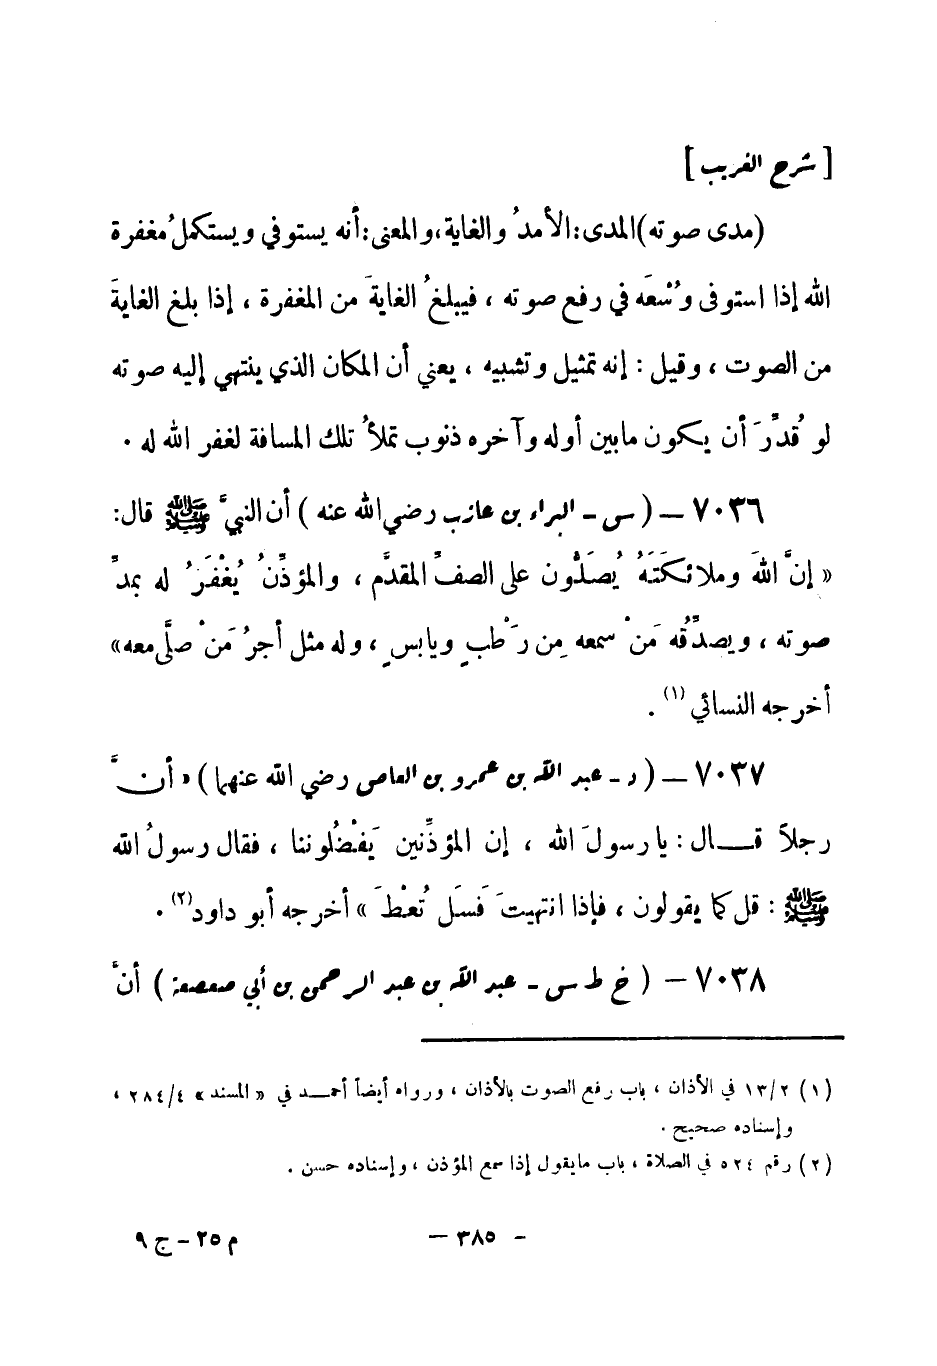 [ شرح الغريب ]
(مدى صوته) المدى : الأمدُ والغاية، والمعنى : أنه يستوفي ويستكملُ مغفرة
الله إذا استوفى وُسْعَه في رفع صوته ، فيبلغُ الغايةَ من المغفرة ، إذا بلغ الغايةَ
من الصوت ، وقيل : إنه تمثيل وتشبيه ، يعني أن المكان الذي ينتهي إليه صوته
لو قُدِّرَ أن يكون مابين أوله وآخره ذنوب تملأُ تلك المسافة لغفر الله له .
٧٠٣٦ – ( س - البراء بن عازب رضي الله عنه ) أن النبيَّ ﷺ قال :
« إنَّ اللهَ وملائكتَهُ يُصَلُّون على الصفِّ المقدَّم ، والمؤذِّنُ يُغْفَرُ له بمدِّ
صوته ، ويصدِّقُه مَنْ سمعه مِن رَطْبٍ ويابسٍ ، وله مثل أجرُ مَنْ صلَّى معه»
أخرجه النسائي (١) .
٧٠٣٧ – ( د - عبد الله بن عمرو بن العاص رضي الله عنهما ) « أنَّ
رجلاً قـــال : يا رسولَ الله ، إن المؤذِّنين يَفْضُلُوننا ، فقال رسولُ الله
ﷺ : قل كما يقولون ، فإذا انتهيتَ فَسَل تُعْطَ » أخرجه أبو داود (٢) .
٧٠٣٨ – ( خ ط س - عبد الله بن عبد الرحمن بن أبي صعصعة ) أنَّ
(١) ١٣/٢ في الأذان ، باب رفع الصوت بالأذان ، ورواه أيضاً أحمـــد في « المسند » ٢٨٤/٤ ،
وإسناده صحيح .
(٢) رقم ٥٢٤ في الصلاة ، باب مايقول إذا سمع المؤذن ، وإسناده حسن .
- ٣٨٥ –
م ٢٥ - ج ٩